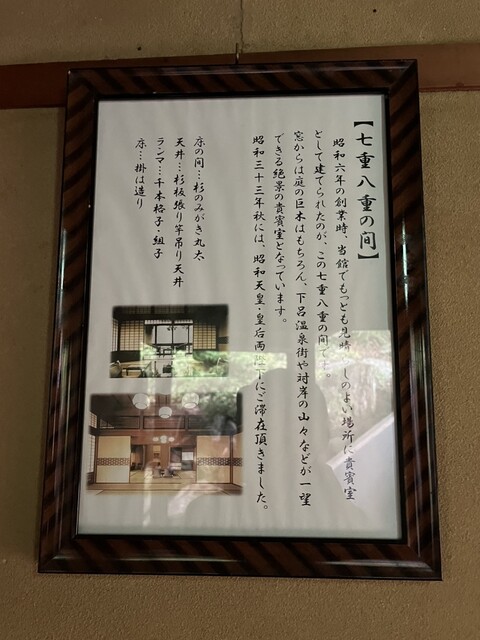 【七重八重の間】
昭和六年の創業時、当館でもっとも見晴しのよい場所に貴賓室
として建てられたのが、この七重八重の間です。
窓からは庭の巨木はもちろん、下呂温泉街や対岸の山々などが一望
できる絶景の貴賓室となっています。
昭和三十三年秋には、昭和天皇・皇后両陛下にご滞在頂きました。
床の間…杉のみがき丸太
天井…杉板張り竿吊り天井
ランマ…千本格子・組子
床…掛は造り